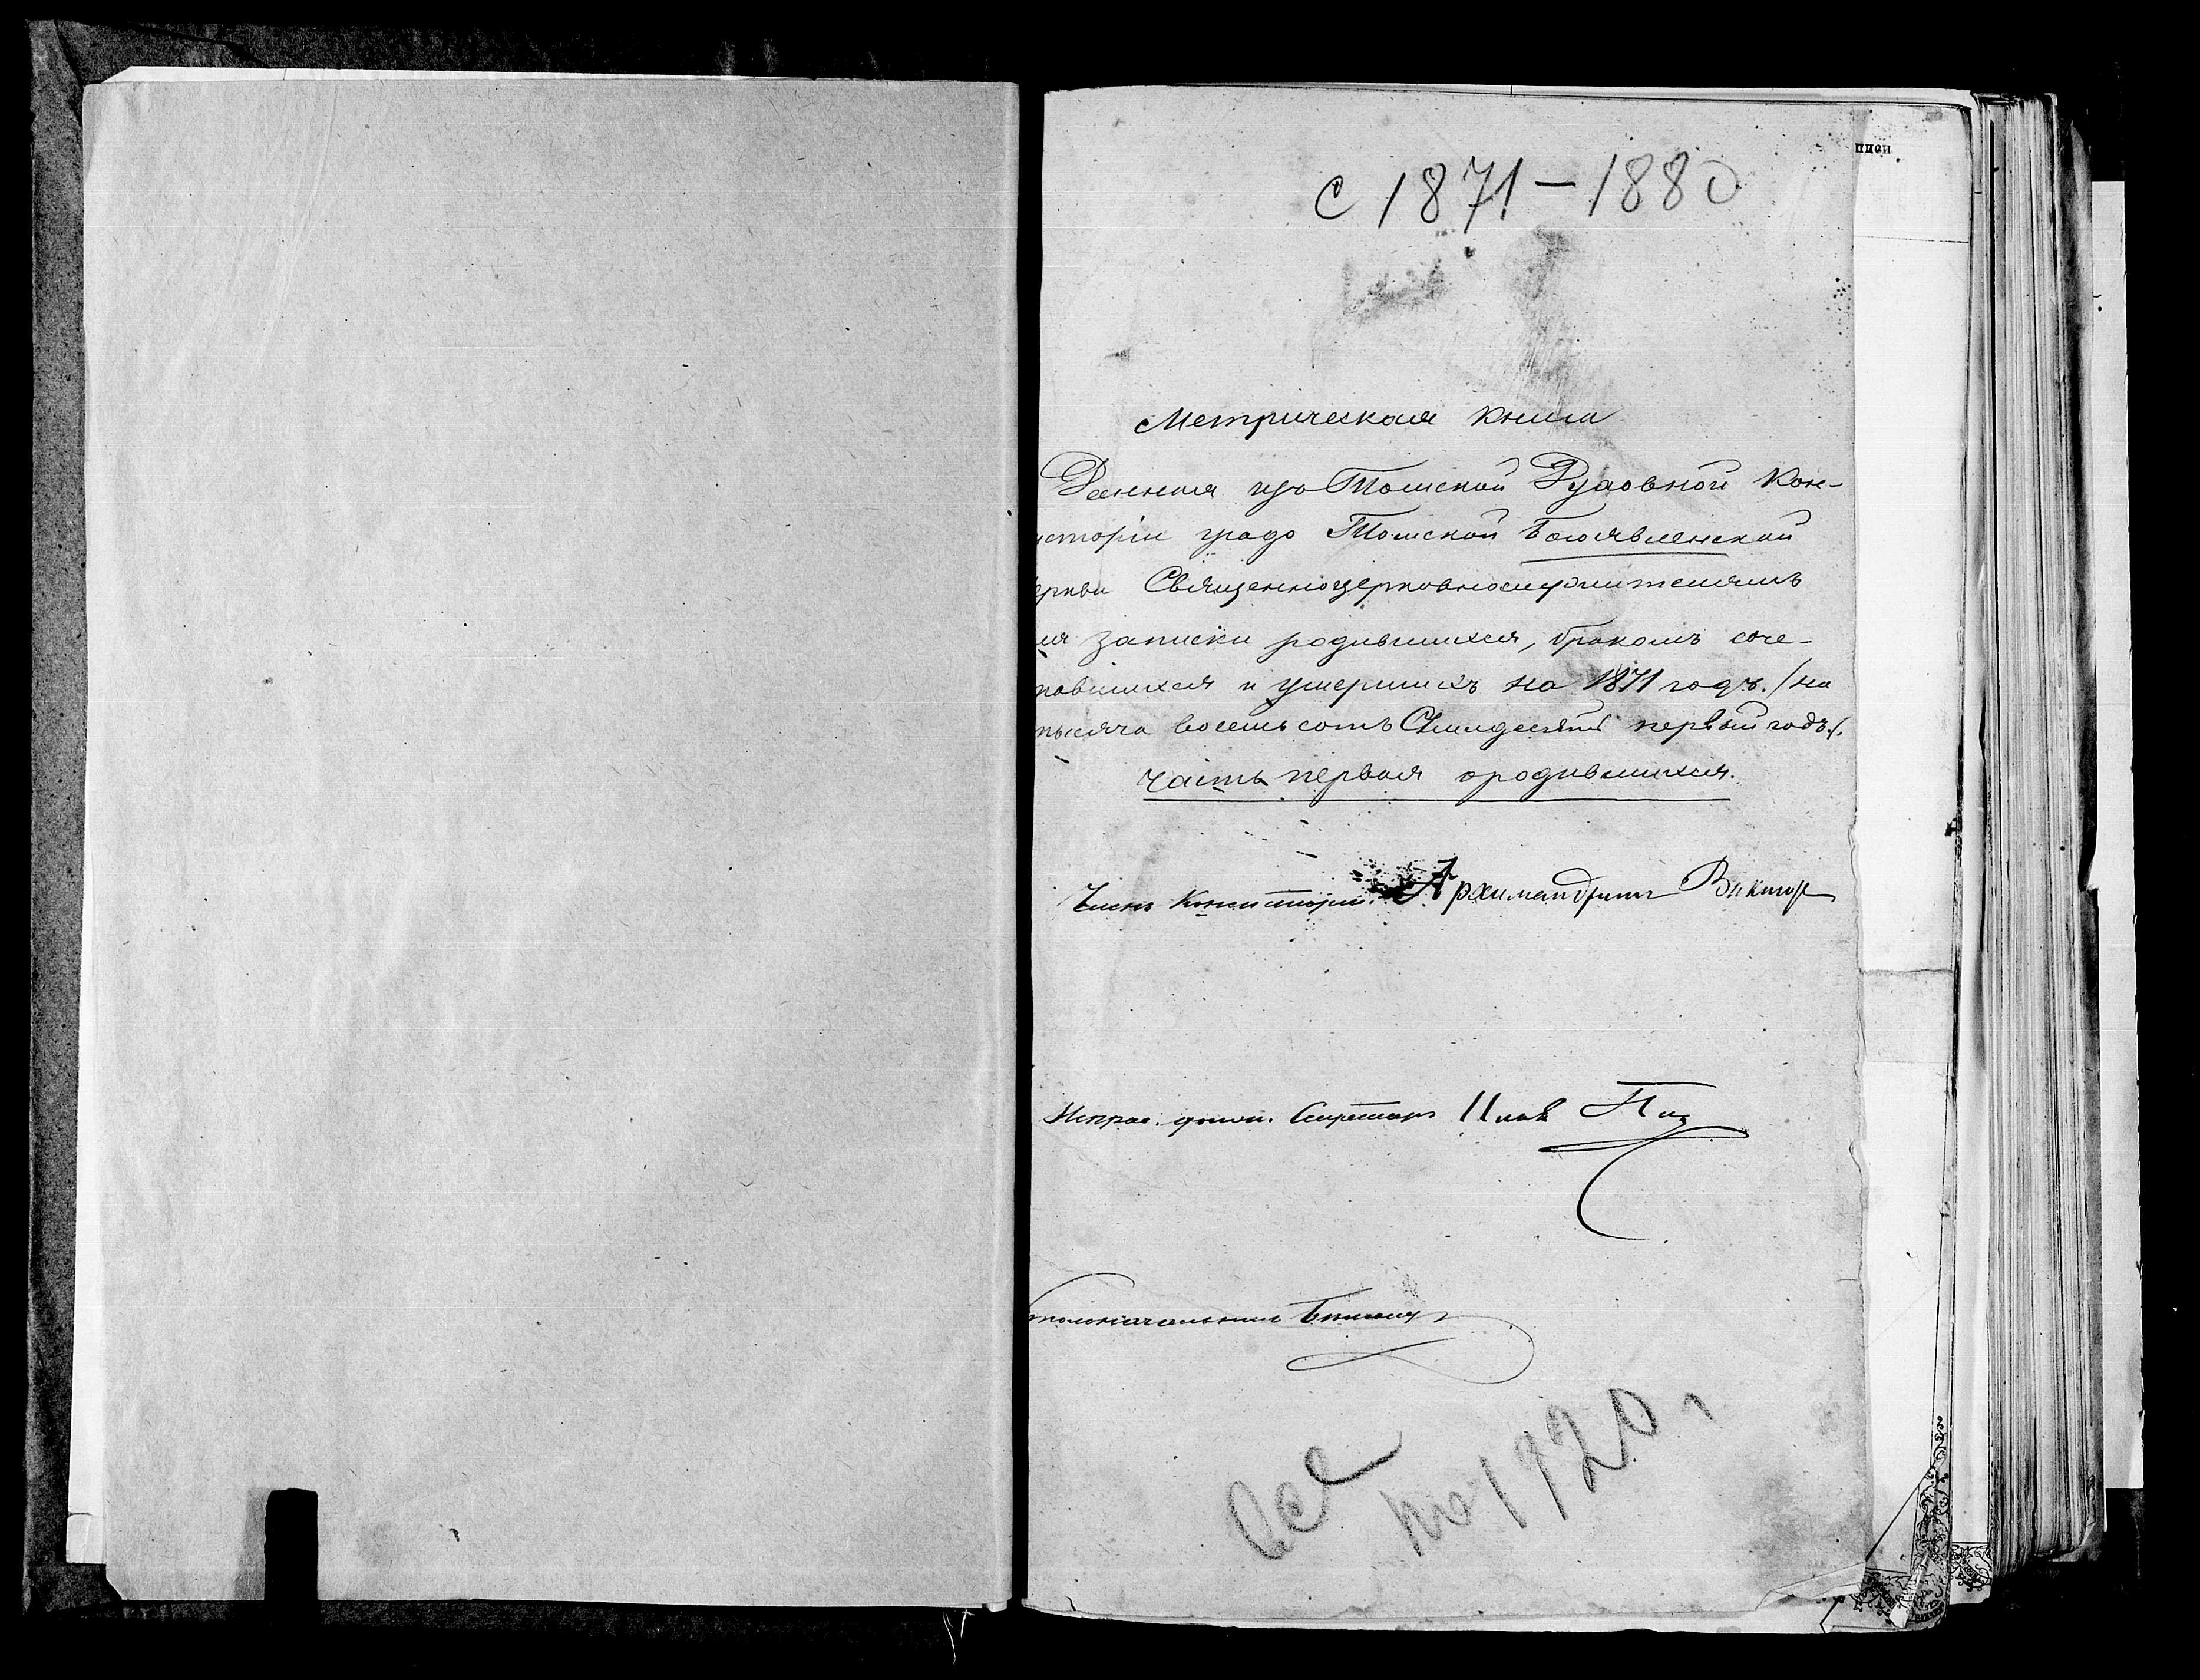 с 1871 – 1880
пиои
Метрическая книга
Данная изъ Томской Духовной Кон-
сторіи градо Томской Богоявленской
еркви Священноцерковнослужителямъ
ля записки родившихся, бракомъ соче-
тавшихся и умершихъ на 1871 годъ. /на
тысяча восемь сотъ Семидесятый первый годъ/.
Часть первая о родившихся.
Членъ Консисторіи Архимандритъ Виктор
Исправ. долж. Секретаря
толоначальникъ
по 1920 г